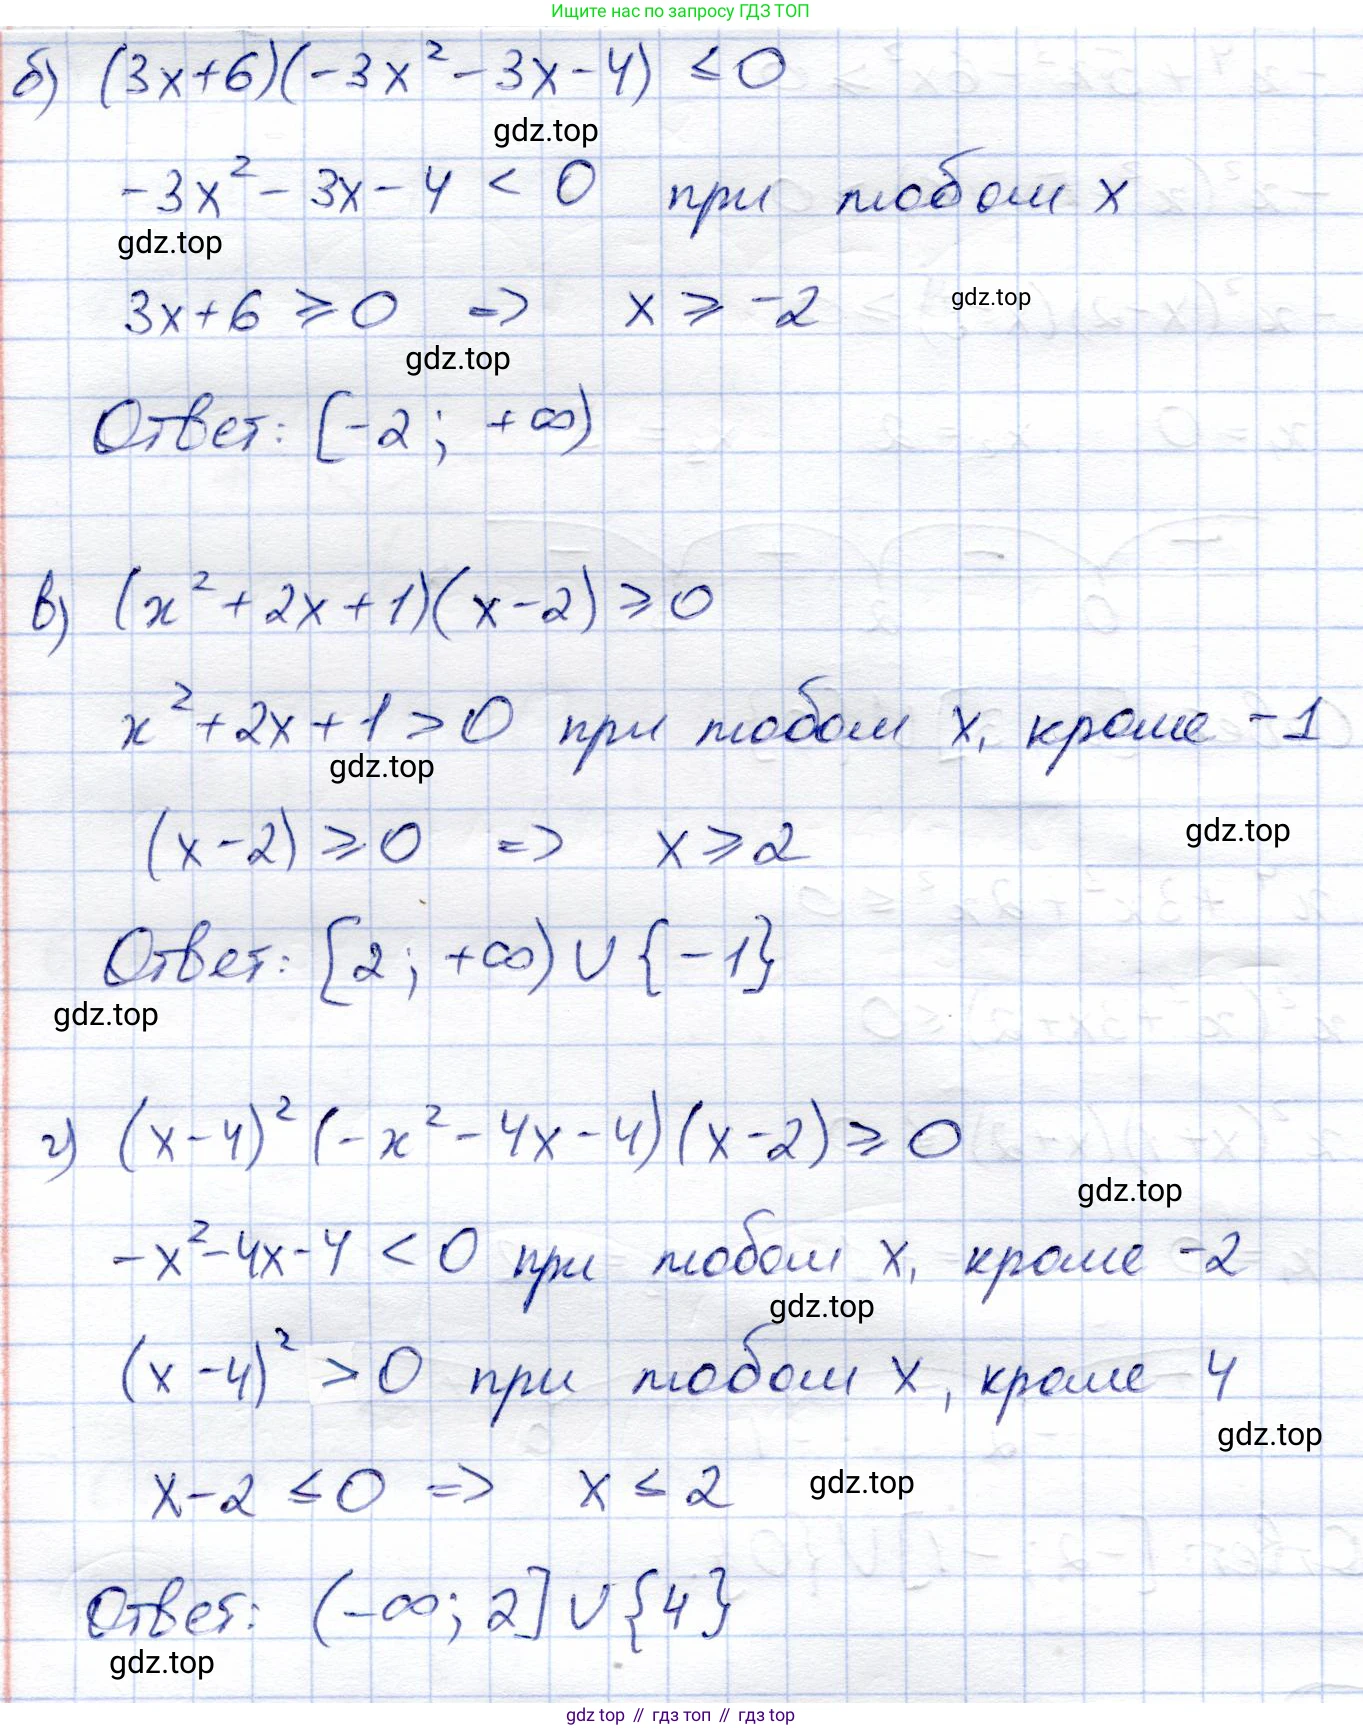 Ищите нас по запросу ГДЗ ТОП
б) (3x+6)(-3x²-3x-4) ≤ 0
gdz.top
-3x²-3x-4 < 0 при любом x
gdz.top
3x+6 ≥ 0 => x ≥ -2
gdz.top
gdz.top
Ответ: [-2; +∞)
в) (x²+2x+1)(x-2) ≥ 0
x²+2x+1 > 0 при любом x, кроме -1
gdz.top
(x-2) ≥ 0 => x ≥ 2
gdz.top
Ответ: [2; +∞) ∪ {-1}
gdz.top
г) (x-4)²(-x²-4x-4)(x-2) ≥ 0
gdz.top
-x²-4x-4 < 0 при любом x, кроме -2
gdz.top
(x-4)² > 0 при любом x, кроме 4
gdz.top
x-2 ≤ 0 => x ≤ 2
gdz.top
Ответ: (-∞; 2] ∪ {4}
gdz.top
gdz.top // гдз топ // гдз top